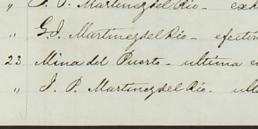 " J. P. Martinez del Rio -
" G. J. Martinez del Rio - efectivo
23 Mina del Puerto - ultima
" J. P. Martinez del Rio.